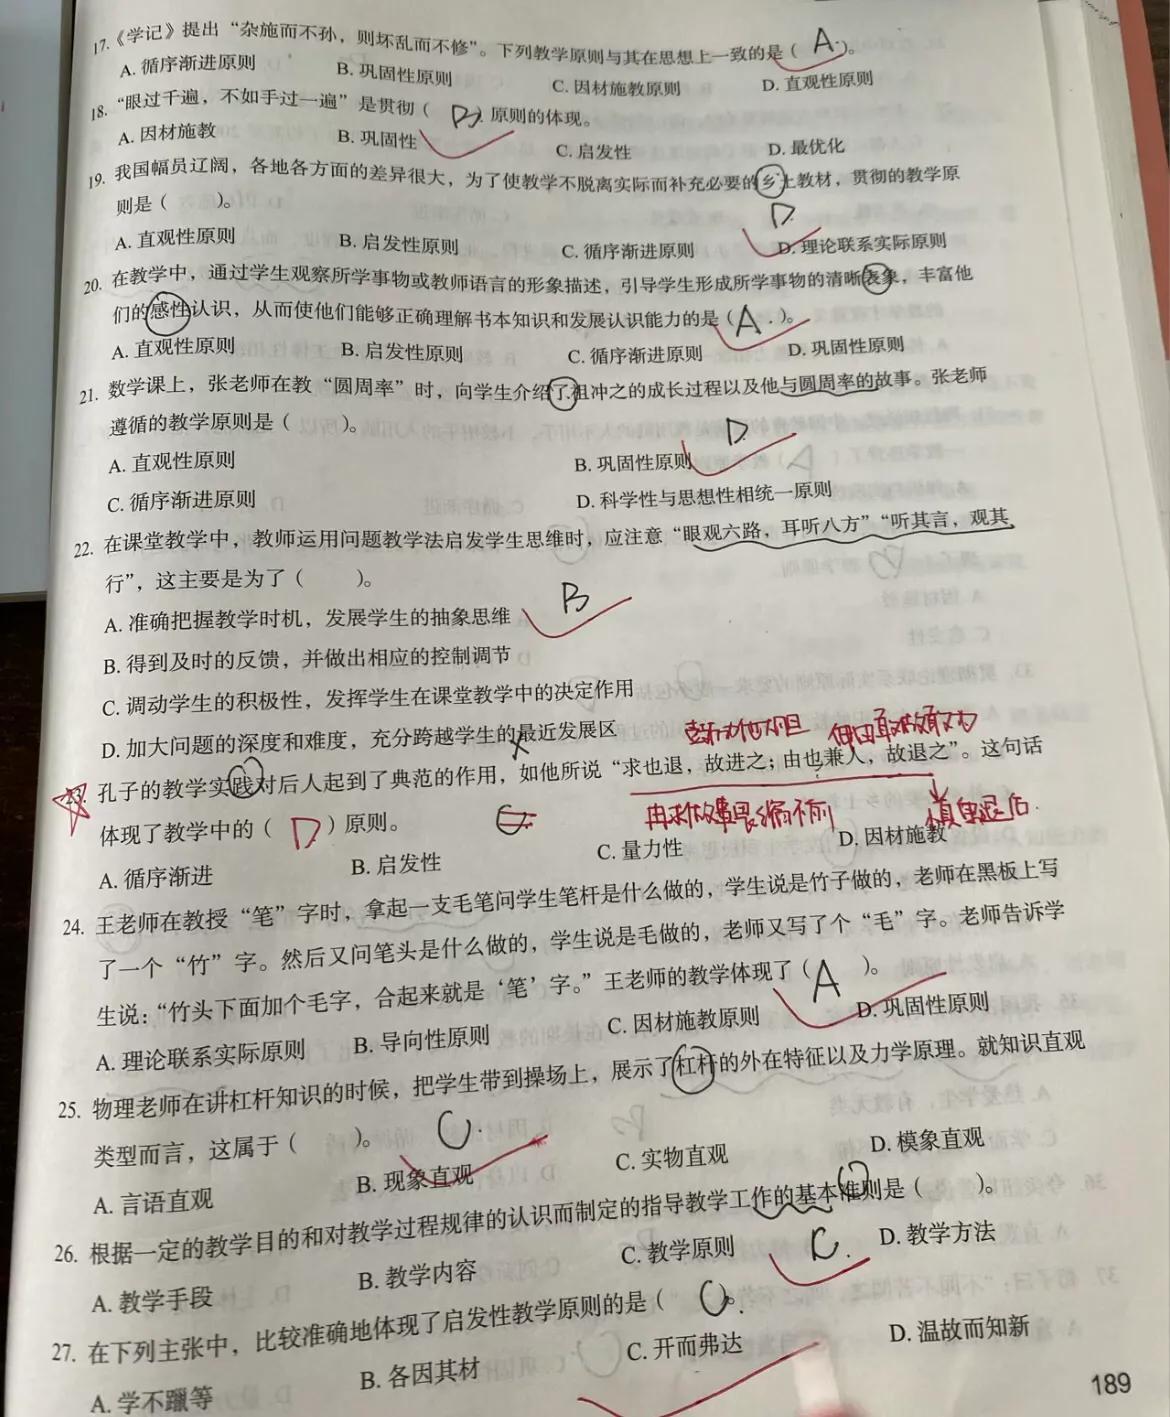 17.《学记》提出“杂施而不孙，则坏乱而不修”。下列教学原则与其在思想上一致的是（ A. ）。
A. 循序渐进原则 B. 巩固性原则 C. 因材施教原则 D. 直观性原则
18. “眼过千遍，不如手过一遍”是贯彻（ B ）原则的体现。
A. 因材施教 B. 巩固性 C. 启发性 D. 最优化
19. 我国幅员辽阔，各地各方面的差异很大，为了使教学不脱离实际而补充必要的乡土教材，贯彻的教学原
则是（ ）。
D
A. 直观性原则 B. 启发性原则 C. 循序渐进原则 D. 理论联系实际原则
20. 在教学中，通过学生观察所学事物或教师语言的形象描述，引导学生形成所学事物的清晰表象，丰富他
们的感性认识，从而使他们能够正确理解书本知识和发展认识能力的是（ A. ）。
A. 直观性原则 B. 启发性原则 C. 循序渐进原则 D. 巩固性原则
21. 数学课上，张老师在教“圆周率”时，向学生介绍了祖冲之的成长过程以及他与圆周率的故事。张老师
遵循的教学原则是（ ）。
D
A. 直观性原则 B. 巩固性原则
C. 循序渐进原则 D. 科学性与思想性相统一原则
22. 在课堂教学中，教师运用问题教学法启发学生思维时，应注意“眼观六路，耳听八方”“听其言，观其
行”，这主要是为了（ ）。
B
A. 准确把握教学时机，发展学生的抽象思维
B. 得到及时的反馈，并做出相应的控制调节
C. 调动学生的积极性，发挥学生在课堂教学中的决定作用
D. 加大问题的深度和难度，充分跨越学生的最近发展区
23. 孔子的教学实践对后人起到了典范的作用，如他所说“求也退，故进之；由也兼人，故退之”。这句话
体现了教学中的（ D ）原则。
A. 循序渐进 B. 启发性 C. 量力性 D. 因材施教
24. 王老师在教授“笔”字时，拿起一支毛笔问学生笔杆是什么做的，学生说是竹子做的，老师在黑板上写
了一个“竹”字。然后又问笔头是什么做的，学生说是毛做的，老师又写了个“毛”字。老师告诉学
生说：“竹头下面加个毛字，合起来就是‘笔’字。”王老师的教学体现了（ A ）。
A. 理论联系实际原则 B. 导向性原则 C. 因材施教原则 D. 巩固性原则
25. 物理老师在讲杠杆知识的时候，把学生带到操场上，展示了杠杆的外在特征以及力学原理。就知识直观
类型而言，这属于（ ）。
C.
A. 言语直观 B. 现象直观 C. 实物直观 D. 模象直观
26. 根据一定的教学目的和对教学过程规律的认识而制定的指导教学工作的基本准则是（ ）。
C.
A. 教学手段 B. 教学内容 C. 教学原则 D. 教学方法
27. 在下列主张中，比较准确地体现了启发性教学原则的是（ C ）。
A. 学不躐等 B. 各因其材 C. 开而弗达 D. 温故而知新
189